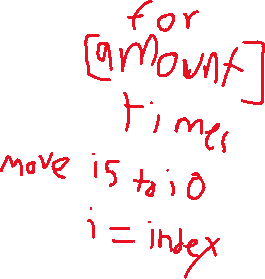 for
[amount]
times
move i5 to i0
i = index